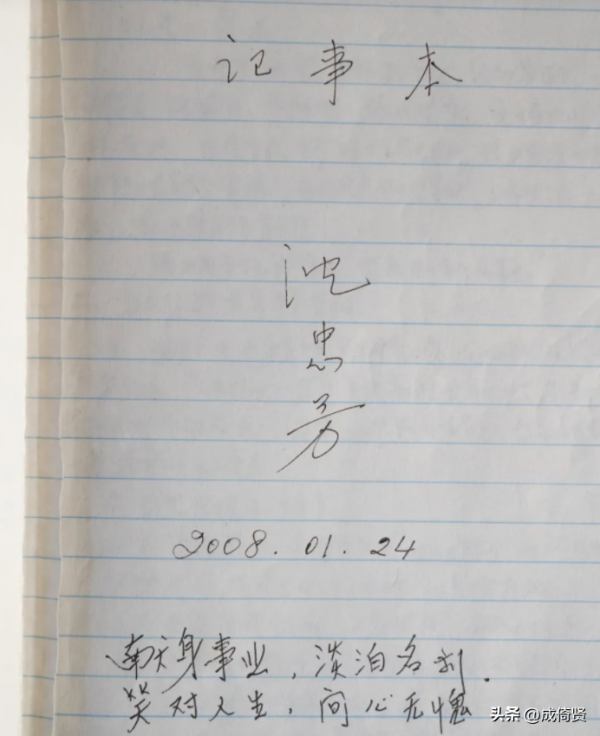 记事本
沈
忠
芳
2008.01.24
献身事业，淡泊名利.
笑对人生，问心无愧
头条 @成倚贤